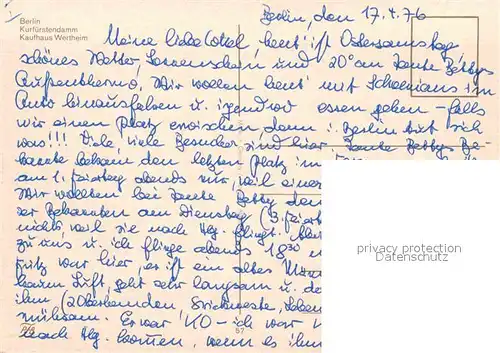 Berlin
Kurfürstendamm
Kaufhaus Wertheim
Berlin, den 17.4.76
Meine liebe Cotel, heut' ist Ostersamstag,
schönes Wetter, Sonnenschein und 20° am Tante Bettys
Außenthermo. Wir wollen heut' mit Schoemans im
Auto hinausfahren u. irgendwo essen gehen – falls
wir einen Platz erwischen, denn i. Berlin tut sich
was!!! Viele, viele Besucher sind hier. Tante Bettys Be-
kannte bekam den letzten Platz im
am 1. Feiertag abends nur, weil einer
Wir wollten bei Tante Betty den
der Bekannten am Dienstag (3. Feiert
nicht, weil sie nach Hg. fliegt.
zu uns u. ich fliege abends 18³⁰
Fritz war hier, er ist ein altes
kaum Luft, geht sehr langsam u. da
ihm (2 Oberhemden, Strickweste,
mühsam. Er war KO – ich war
nach Hg. kommen, wenn es ihm
57
privacy protection
Datenschutz